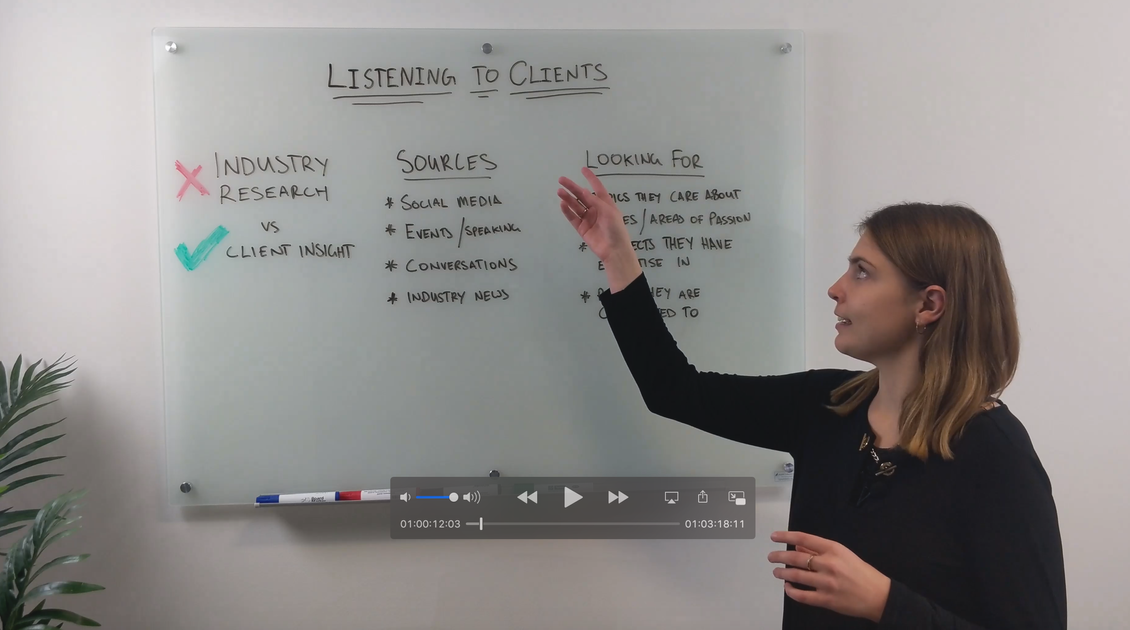 LISTENING TO CLIENTS
INDUSTRY
RESEARCH
VS
CLIENT INSIGHT
SOURCES
* SOCIAL MEDIA
* EVENTS/SPEAKING
* CONVERSATIONS
* INDUSTRY NEWS
LOOKING FOR
THEY CARE ABOUT
/AREAS OF PASSION
* THEY HAVE
IN
* THEY ARE
TO
01:00:12:03
01:03:18:11